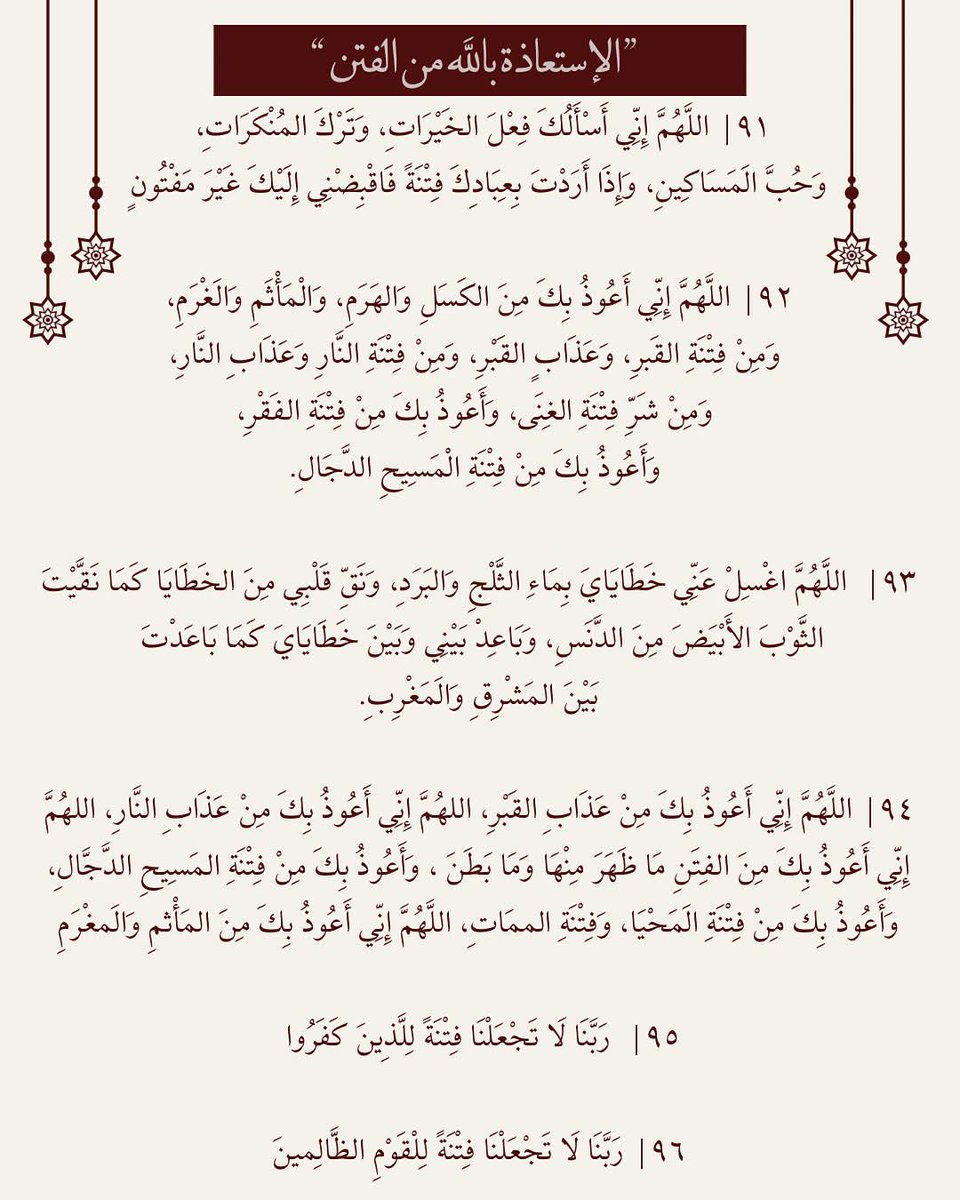 ”الإستعاذة بالله من الفتن“
٩١| اللَّهُمَّ إِنِّي أَسْأَلُكَ فِعْلَ الخَيْرَاتِ، وَتَرْكَ المُنْكَرَاتِ،
وَحُبَّ الَمَسَاكِينِ، وَإِذَا أَرَدْتَ بِعِبَادِكَ فِتْنَةً فَاقْبِضْنِي إِلَيْكَ غَيْرَ مَفْتُونٍ
٩٢| اللَّهُمَّ إِنِّي أَعُوذُ بِكَ مِنَ الكَسَلِ وَالهَرَمِ، وَالْمَأْثَمِ وَالَغْرَمِ،
وَمِنْ فِتْنَةِ القَبرِ، وَعَذَابٍ القَبْرِ، وَمِنْ فِتْنَةِ النَّارِ وَعَذَابِ النَّارِ،
وَمِنْ شَرِّ فِتْنَةِ الغِنَى، وَأَعُوذُ بِكَ مِنْ فِتْنَةِ الفَقْرِ،
وَأَعُوذُ بِكَ مِنْ فِتْنَةِ الْمَسِيحِ الدَّجَالِ.
٩٣| اللَّهُمَّ اغْسِلْ عَنِّي خَطَايَايَ بِمَاءِ الثَّلْجِ وَالبَرَدِ، وَنَقِّ قَلْبِي مِنَ الخَطَايَا كَمَا نَقَّيْتَ
الثَّوْبَ الأَبْيَضَ مِنَ الدَّنَسِ، وَبَاعِدْ بَيْنِي وَبَيْنَ خَطَايَايَ كَمَا بَاعَدْتَ
بَيْنَ المَشْرِقِ وَالَمَغْرِبِ.
٩٤| اللَّهُمَّ إِنِّي أَعُوذُ بِكَ مِنْ عَذَابِ القَبْرِ، اللهُمَّ إِنِّي أَعُوذُ بِكَ مِنْ عَذَابِ النَّارِ، اللهُمَّ
إِنِّي أَعُوذُ بِكَ مِنَ الفِتَنِ مَا ظَهَرَ مِنْهَا وَمَا بَطَنَ ، وَأَعُوذُ بِكَ مِنْ فِتْنَةِ المَسِيحِ الدَّجَّالِ،
وَأَعُوذُ بِكَ مِنْ فِتْنَةِ الَمَحْيَا، وَفِتْنَةِ الممَاتِ، اللَّهُمَّ إِنِّي أَعُوذُ بِكَ مِنَ المَأْثمِ وَالَمغْرَمِ
٩٥| رَبَّنَا لَا تَجْعَلْنَا فِتْنَةً لِلَّذِينَ كَفَرُوا
٩٦| رَبَّنَا لَا تَجْعَلْنَا فِتْنَةً لِلْقَوْمِ الظَّالِمينَ